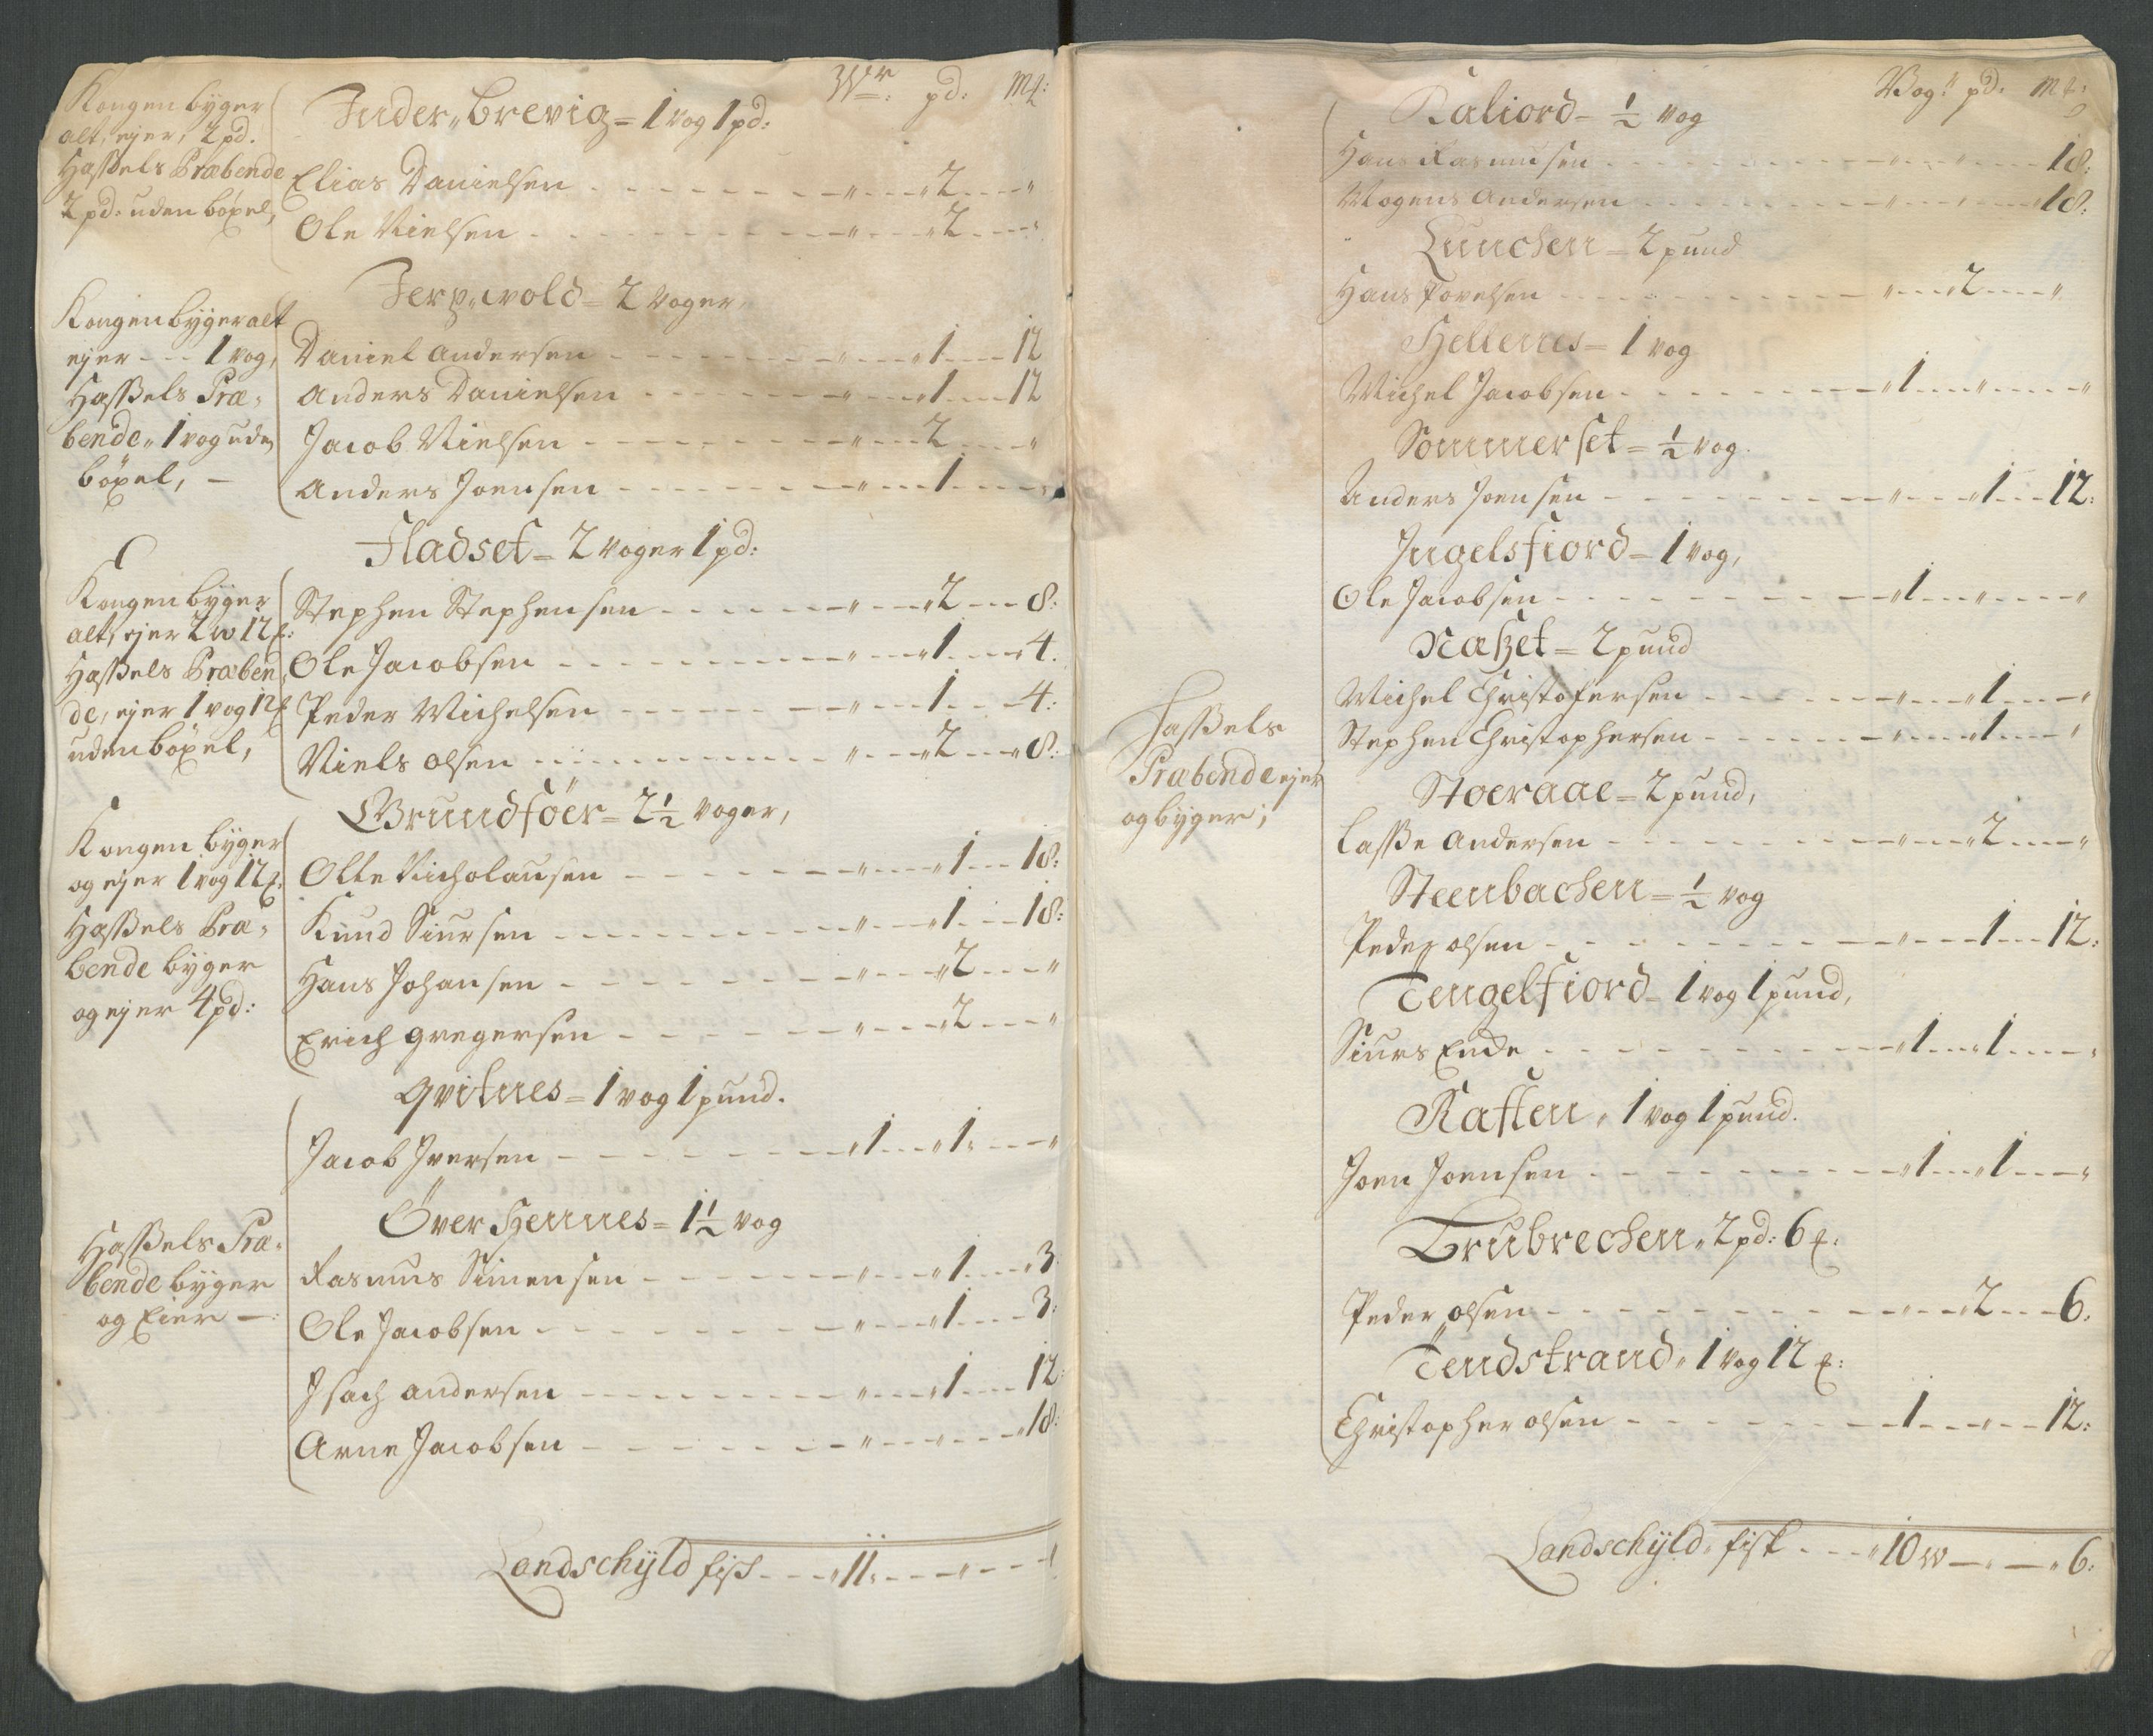 Wr: pd: M:
Kongen byger
alt, ejer, 2 pd.
Hasßels Præbende
2 pd: uden böxel,
Inder„brevig = 1 vog 1 pd:
Elias Danielsen - - - „ - - „ 2 - - „
Ole Nielsen - - - „ - - „ 2 - - „
Kongen byger alt
ejer - - 1 vog,
Hasßels Præ„
bende„ 1 vog uden
böxel, -
Jerp„wold = 2 voger
Daniel Andersen - - - „ - - „ 1 - - 12
Anders Danielsen - - - „ - - „ 1 - - 12
Jacob Nielsen - - - „ - - 2 - - „
Anders Joensen - - - „ - - 1 - - „
Kongen byger
alt, ejer 2 w 12
Hasßels Præben
de, ejer 1 vog 12
uden böxel,
Fladset = 2 voger 1 pd:
Stephen Stephensen - - - „ - - „ 2 - - 8:
Ole Jacobsen - - - „ - - „ 1 - - 4.
Peder Michelsen - - - „ - - „ 1 - - 4:
Niels olsen - - - „ - - „ 2 - - „ 8:
Kongen byger
og ejer 1 vog 12
Hasßels Præ„
bende byger
og ejer 4 pd:
Grundföer = 2 1/2 voger,
Olle Nicholausen - - - „ - - „ 1 - - 18:
Knud Siursen - - - „ - - „ 1 - - 18:
Hans Johansen - - - „ - - „ 2 - - „
Erich gregersen - - - „ - - „ 2 - - „
Qvitnes = 1 vog 1 pund.
Jacob Iversen - - - „ 1 - - „ 1 - - „
Hasßels Præ„
bende byger
og Eier -
Över Hennes = 1 1/2 vog
Rasmus Simensen - - - „ - - „ 1 - - „ 3
Ole Jacobsen - - - „ - - „ 1 - - 3:
Isach andersen - - - „ - - „ 1 - - 12:
Arne Jacobsen - - - „ - - „ - - „ 18:
Landschÿld fisch - - „ 11 „ - - „ - -
Vog: pd: M:
Kaliord = 1/2 vog
Hans Rasmusen - - - „ - - „ - - 18:
Mogens Andersen - - - „ - - „ - - 18:
Lunchen = 2 pund
Hans Povelsen - - - „ - - 2 - - „
Hellenes = 1 vog
Michel Jacobsen - - - „ 1 - - „ - - „
Sommerset = 1/2 vog.
Anders Joensen - - - „ - - „ 1 - - 12:
Ingelsfiord = 1 vog,
Ole Jacobsen - - - „ 1 - - „ - - „
Næsset = 2 pund
Michel Christofersen - - - „ - - „ 1 - - „
Stephen Christophersen - - - „ - - „ 1 - - „
Hasßels
Præbende ejer
og byger;
Stoeraae = 2 pund,
Lasße Andersen - - - „ - - „ 2 - - „
Steenbachen = 1/2 vog
Peder olsen - - - „ - - „ 1 - - 12:
Tengelfiord = 1 vog 1 pund,
Siurs Ende - - - „ 1 - - „ 1 - - „
Raften „ 1 vog 1 pund.
Joen Joensen - - - „ 1 - - „ 1 - - „
Trubrechen „ 2 pd: 6
Peder olsen - - - „ - - „ 2 - - 6.
Tendstrand „ 1 vog 12
Christopher olsen - - - „ 1 - - „ - - 12:
Landschÿld„ fisk - - „ 10 w - „ - „ 6: